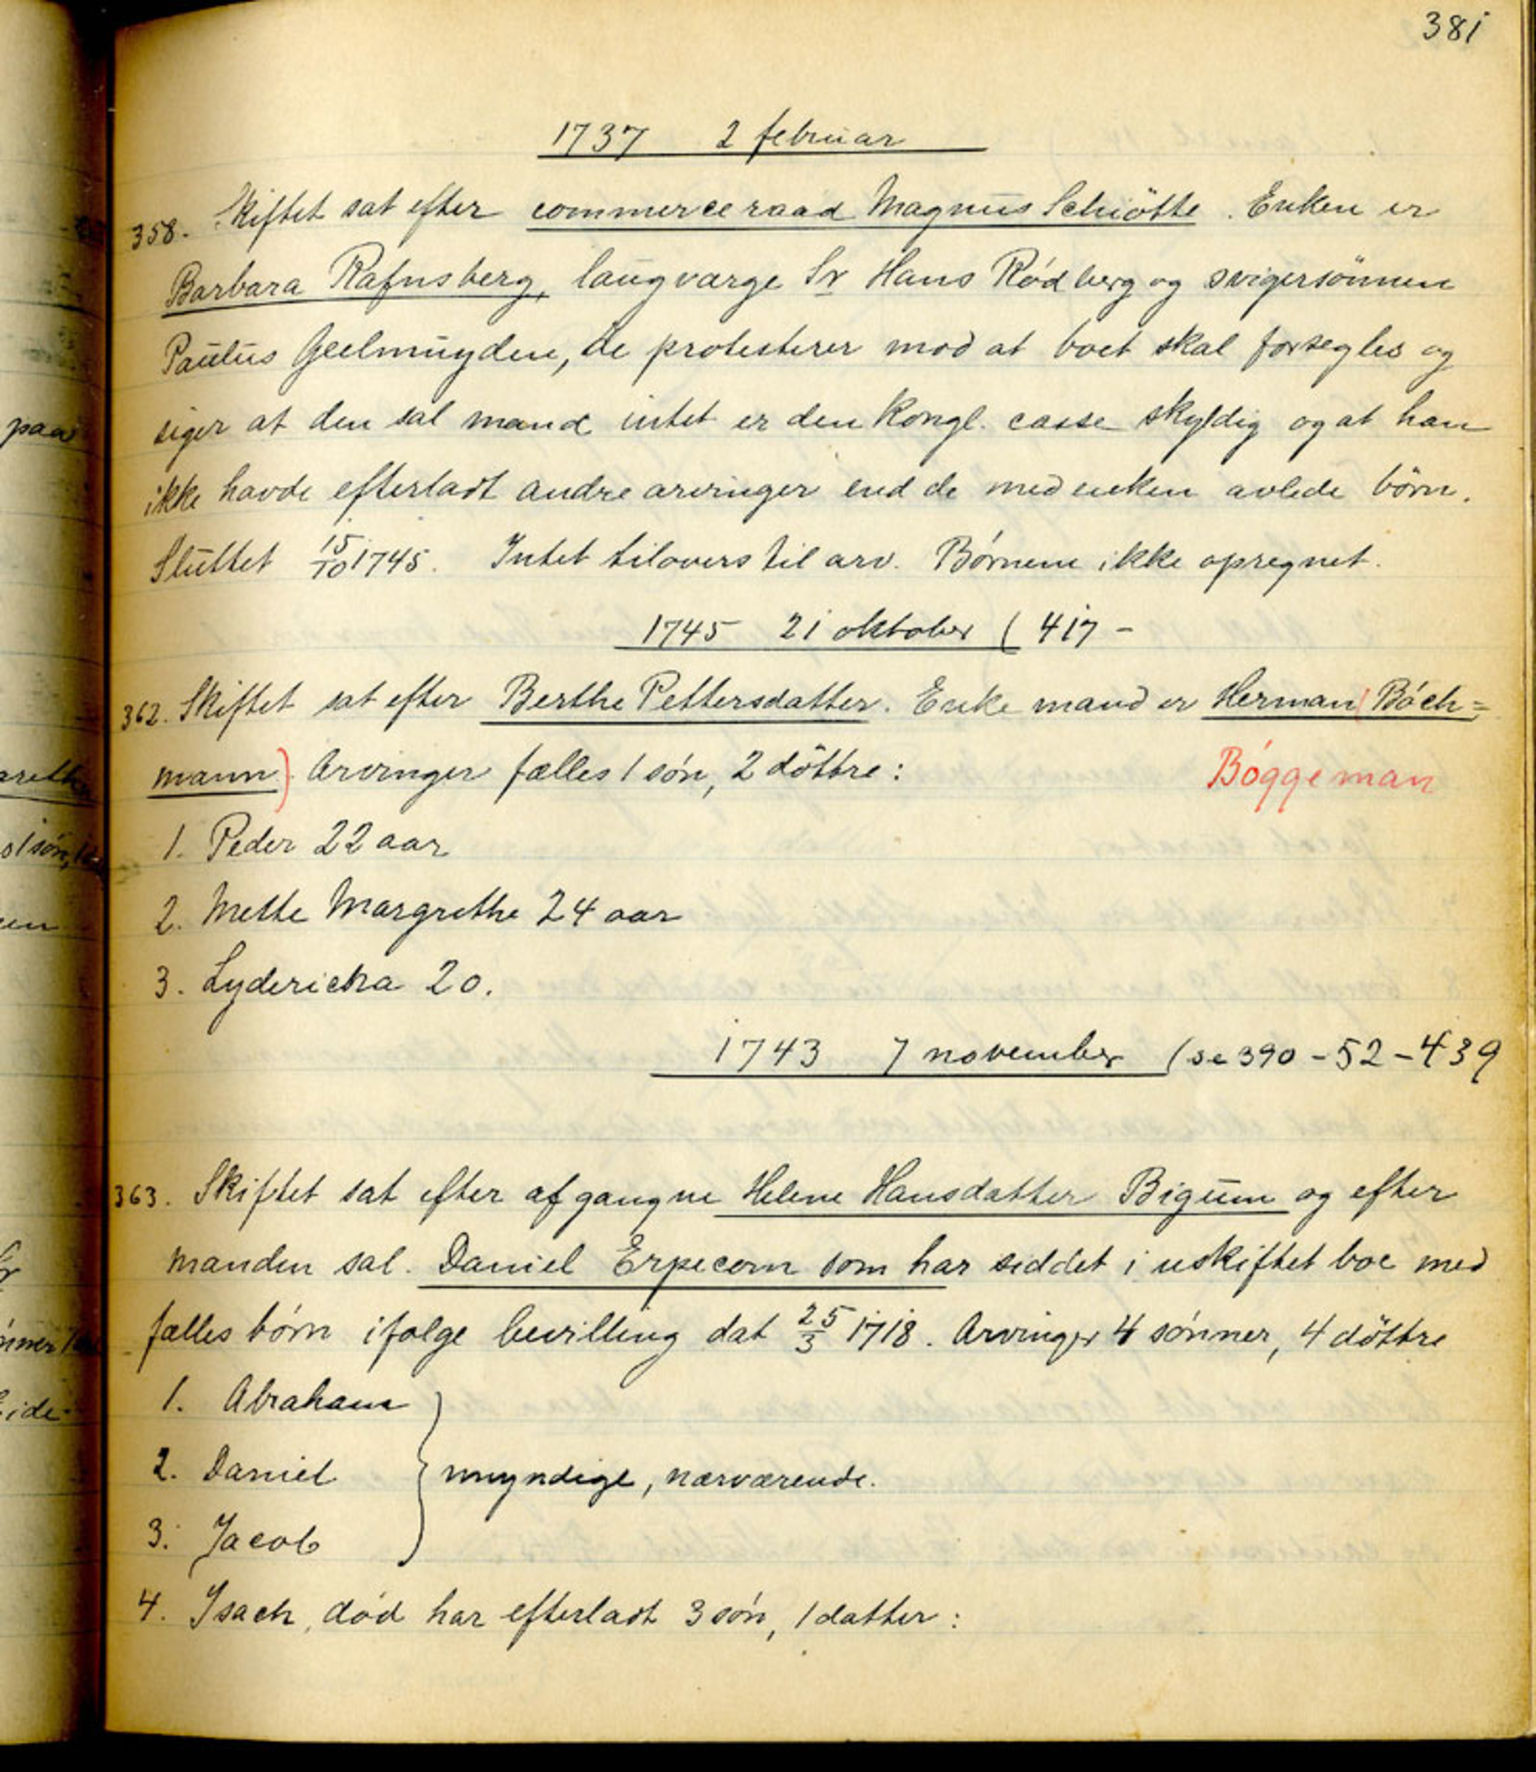 381
1737 2 februar
358. Skiftet sat efter commerceraad Magnus Schiötte. Enken er
Barbara Rafnsberg, laugværge Sr Hans Rødberg og svigersönnen
Paulus Geelmuyden, de protesterer mod at boet skal forsegles og
siger at den sal mand intet er den Kongl. casse skyldig og at han
ikke havde efterladt andre arvinger end de med enken avlede börn.
Sluttet 15/10 1745. Intet tilovers til arv. Børnene ikke opregnet.
1745 21 oktober ( 417 -
362. Skiftet sat efter Berthe Pettersdatter. Enke mand er Herman Bóch=
mann) Arvinger fælles 1 søn, 2 döttre:
Bóggeman
1. Peder 22 aar
2. Mette Margrethe 24 aar
3. Lydericha 20.
1743 7 november (se 390 - 52 - 439
363. Skiftet sat efter afgangne Helene Hansdatter Bigum og efter
manden sal. Daniel Erpecom som har siddet i uskiftet boe med
fælles børn ifølge bevilling dat 25/3 1718. Arvinger 4 sónner, 4 döttre
1. Abraham
2. Daniel } myndige, nærværende.
3. Jacob
4. Isach, død har efterladt 3 søn, 1 datter: